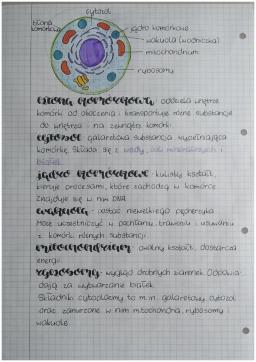 cytozol
błona
komórkowa
jądro komórkowe
wakuola (wodniczka)
mitochondrium
rybosomy
błona komórkowa: oddziela wnętrze
komórki od otoczenia i transportuje różne substancje
do wnętrza i na zewnątrz komórki
cytozol: galaretowata substancja wypełniająca
komórkę. Składa się z wody, soli mineralnych i
białek
jądro komórkowe: kulisty kształt,
kieruje procesami, które zachodzą w komórce
znajduje się w nim DNA
wakuola: postać niewielkiego pęcherzyka.
Może uczestniczyć w pochłanianiu, trawieniu i usuwaniu
z komórki różnych substancji
mitochondrium: owalny kształt, dostarcza
energii
rybosomy: wygląd drobnych ziarenek. Odpowia-
dają za wytwarzanie białek
Składniki cytoplazmy to m.in. galaretowaty cytozol
oraz zanurzone w nim mitochondria, rybosomy i
wakuole